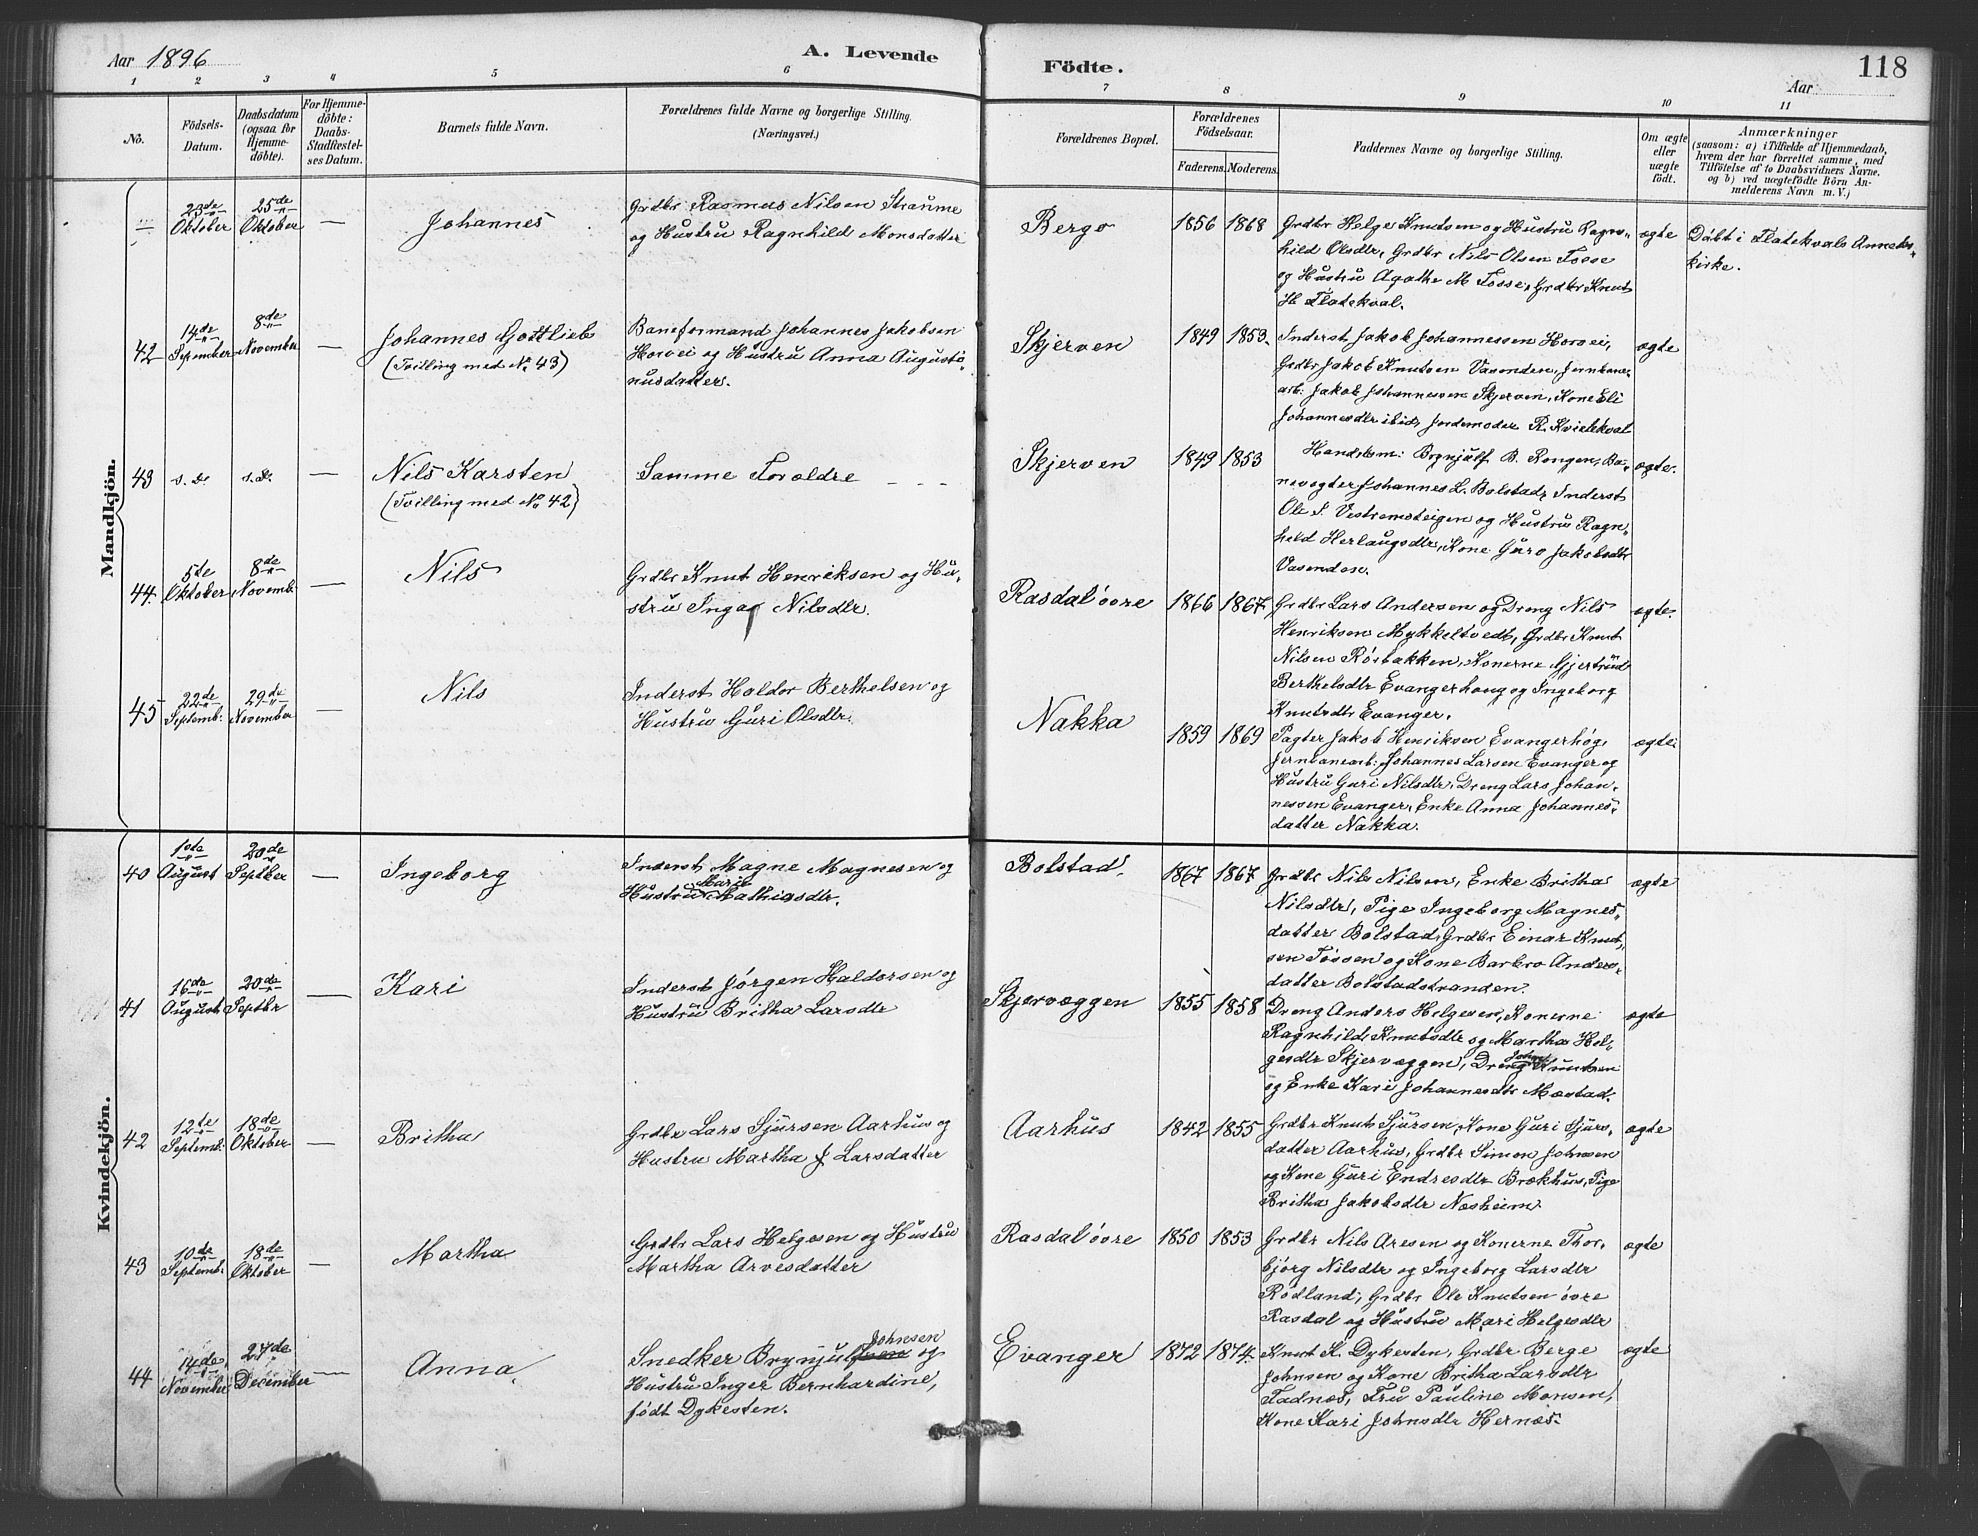 Aar 1896
A. Levende
Födte.
Aar
118
1 2 3 4 5 6 7 8 9 10 11
No.
Födsels-
Datum.
Daabsdatum
(ogsaa for
Hjemme-
döbte).
For Hjemme-
döbte:
Daabs-
Stadfæstel-
ses Datum.
Barnets fulde Navn.
Forældrenes fulde Navne og borgerlige Stilling.
(Næringsvei.)
Forældrenes Bopæl.
Forældrenes
Födselsaar.
Faderens. Moderens.
Faddernes Navne og borgerlige Stilling.
Om ægte
eller
uægte
födt.
Anmærkninger
(saasom: a) i Tilfælde af Hjemmedaab,
hvem der har forrettet samme, med
Tilföielse af to Daabsvidners Navne.
og b) ved uægtefödte Börn An-
melderens Navn m. V.)
Mandkjön.
23de
Oktober
25de
Oktober
—
Johannes
Grdbr Rasmus Nilsen Straume
og Hustru Ragnhild Monsdatter
Bergo
1856 1868
Grdbr Helge Knutsen og Hustru Ragn-
hild Olsdtr, Grdbr Nils Olsen Fosse
og Hustru Agathe M Fosse, Grdbr Knut
H. Flatekval.
ægte
Döbt i Flatekvals Anneks-
kirke.
42
14de
September
8de
November
—
Johannes Gottlieb
(Tvilling med No. 43)
Baneformand Johannes Jakobsen
Horvei og Hustru Anna Augusti-
nusdatter.
Skjerven
1849 1853.
Inderst Jakob Johannessen Horvei,
Grdbr Jakob Knutsen Vasenden, Jernbane-
arb. Jakob Johannessen Skjerven, Kone Eli
Johannesdtr ibid, Jordemoder R. Kvitekval
ægte
43
s. D.
s. D.
—
Nils Karsten
(Tvilling med No 42)
Samme Forældre - - -
Skjerven
1849 1853
Handelsm: Brynjulf B. Rongen, Ba-
nevogter Johannes L. Bolstad, Inderst
Ole S. Vestremsteigen og Hustru Ragn-
hild Herlaugsdtr, Kone Guro Jakobsdtr
Vasenden.
ægte.
44.
5te
Oktober
8de
Novemb:
—
Nils
Grdbr Knut Henriksen og Hu-
stru Inga Nilsdtr.
Rasdal övre
1866 1867
Grdbr Lars Andersen og Dreng Nils
Henriksen Mykkeltvedt, Grdbr Knut
Nilsen Rösbakken, Konerne Gjertrud
Berthelsdtr Evangerhoug og Ingeborg
Knutsdtr Evanger.
ægte.
45
22de
Septemb:
29de
November
—
Nils
Inderst Haldor Berthelsen og
Hustru Guri Olsdtr.
Nakka
1859 1869
Pagter Jakob Henriksen Evangerhög,
Jernbanearb: Johannes Larsen Evanger og
Hustru Guri Nilsdtr, Dreng Lars Johan-
nessen Evanger, Enke Anna Johannes-
datter Nakka.
ægte.
Kvindekjön.
40
10de
August
20de
Septber
—
Ingeborg
Inderst Magne Magnesen og
Hustru Marie Mathiasdtr.
Bolstad.
1867 1867
Grdbr Nils Nilsen, Enke Britha
Nilsdtr, Pige Ingeborg Magnes-
datter Bolstad, Grdbr Einar Knut-
sen Fossen og Kone Barbro Anders-
datter Bolstadstranden.
ægte
41
16de
August
20de
Septbr
—
Kari
Inderst Jörgen Haldorsen og
Hustru Britha Larsdtr
Skjervæggen
1855 1858
Dreng Anders Helgesen, Konerne
Ragnhild Knutsdtr og Martha Hel-
gesdtr Skjervæggen, Dreng Johns Knutsen
og Enke Kari Johannesdtr Mæstad.
ægte
42
12te
Septemb:
18de
Oktober
—
Britha
Grdbr Lars Sjursen Aarhus og
Hustru Martha J Larsdatter
Aarhus
1842 1855
Grdbr Knut Sjursen, Kone Guri Sjurs-
datter Aarhus, Grdbr Simon Johnsen
og Kone Guri Endresdtr Brækhus, Pige
Britha Jakobsdtr Næsheim.
ægte
43
10de
Septemb:
18de
Oktober
—
Martha
Grdbr Lars Helgesen og Hustru
Martha Arvesdatter
Rasdal övre
1850 1853
Grdbr Nils Aresen og Konerne Thor-
björg Nilsdtr og Ingeborg Larsdtr
Rödland, Grdbr Ole Knutsen övre
Rasdal og Hustru Mari Helgesdtr
ægte
44
14de
November
27de
December
—
Anna.
Snedker Brynjulf Johnsen og
Hustru Inger Bernhardine,
födt Dykesten.
Evanger
1872 1874.
Knut K. Dykesten, Grdbr Berge
Johnsen og Kone Britha Larsdtr
Fadnæs, Fru Pauline Monsen,
Kone Kari Johnsdtr Hernæs.
ægte